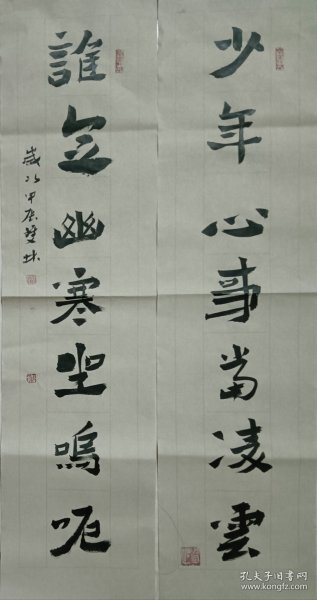 少年心事當凌雲
誰念幽寒坐嗚呃
歲次甲辰雙林
孔夫子旧书网